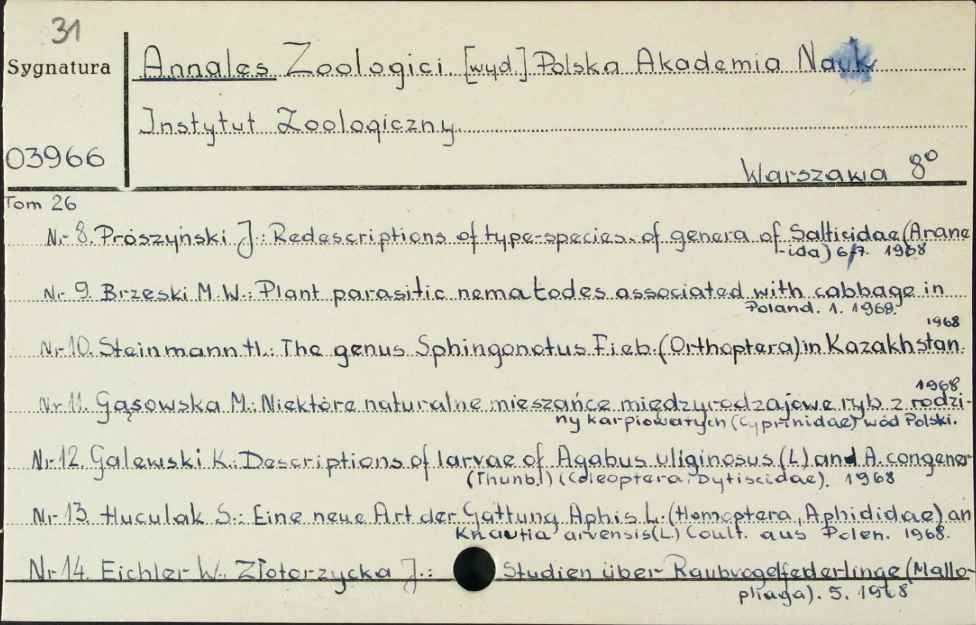 31
Sygnatura
Annales Zoologici [wyd.] Polska Akademia Nauk
Instytut Zoologiczny
03966
Warszawa 8°
Tom 26
Nr 8. Prószyński J.: Redescriptions of type-species of genera of Salticidae (Arane
-ida) 6/7. 1968
Nr 9. Brzeski M.W.: Plant parasitic nematodes associated with cabbage in
Poland. 1. 1968.
1968
Nr 10. Steinmann H.: The genus Sphingonotus Fieb. (Orthoptera) in Kazakhstan.
1968
Nr 11. Gąsowska M.: Niektóre naturalne mieszańce międzyrodzajowe ryb z rodzi-
ny karpiowatych (Cyprinidae) wód Polski.
Nr 12. Galewski K.: Descriptions of larvae of Agabus uliginosus (L) and A. congener
(Thunb.) (Coleoptera, Dytiscidae). 1968
Nr 13. Huculak S.: Eine neue Art der Gattung Aphis L. (Homoptera, Aphididae) an
Knautia arvensis (L) Coult. aus Polen. 1968.
Nr 14. Eichler W. Złotorzycka J.: Studien über Raubvogelfederlinge (Mallo-
phaga). 5. 1968